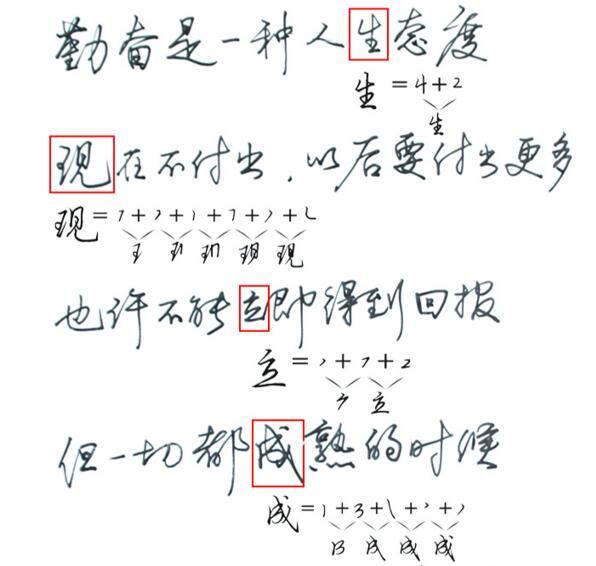 勤奋是一种人生态度
生 = 4 + 2
生
现在不付出，以后要付出更多
现 = 7 + 丶 + 1 + 7 + 丿 + 乚
王 现
也许不能立即得到回报
立 = 丶 + 7 + 2
立
但一切都成熟的时候
成 = 1 + 3 + \ + 丶 + 丿
13 成 成 成